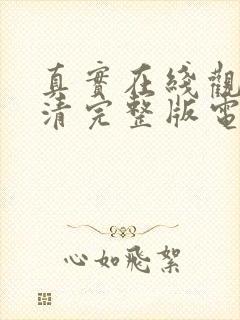 真實在綫觀
清完整版電
心如飛絮